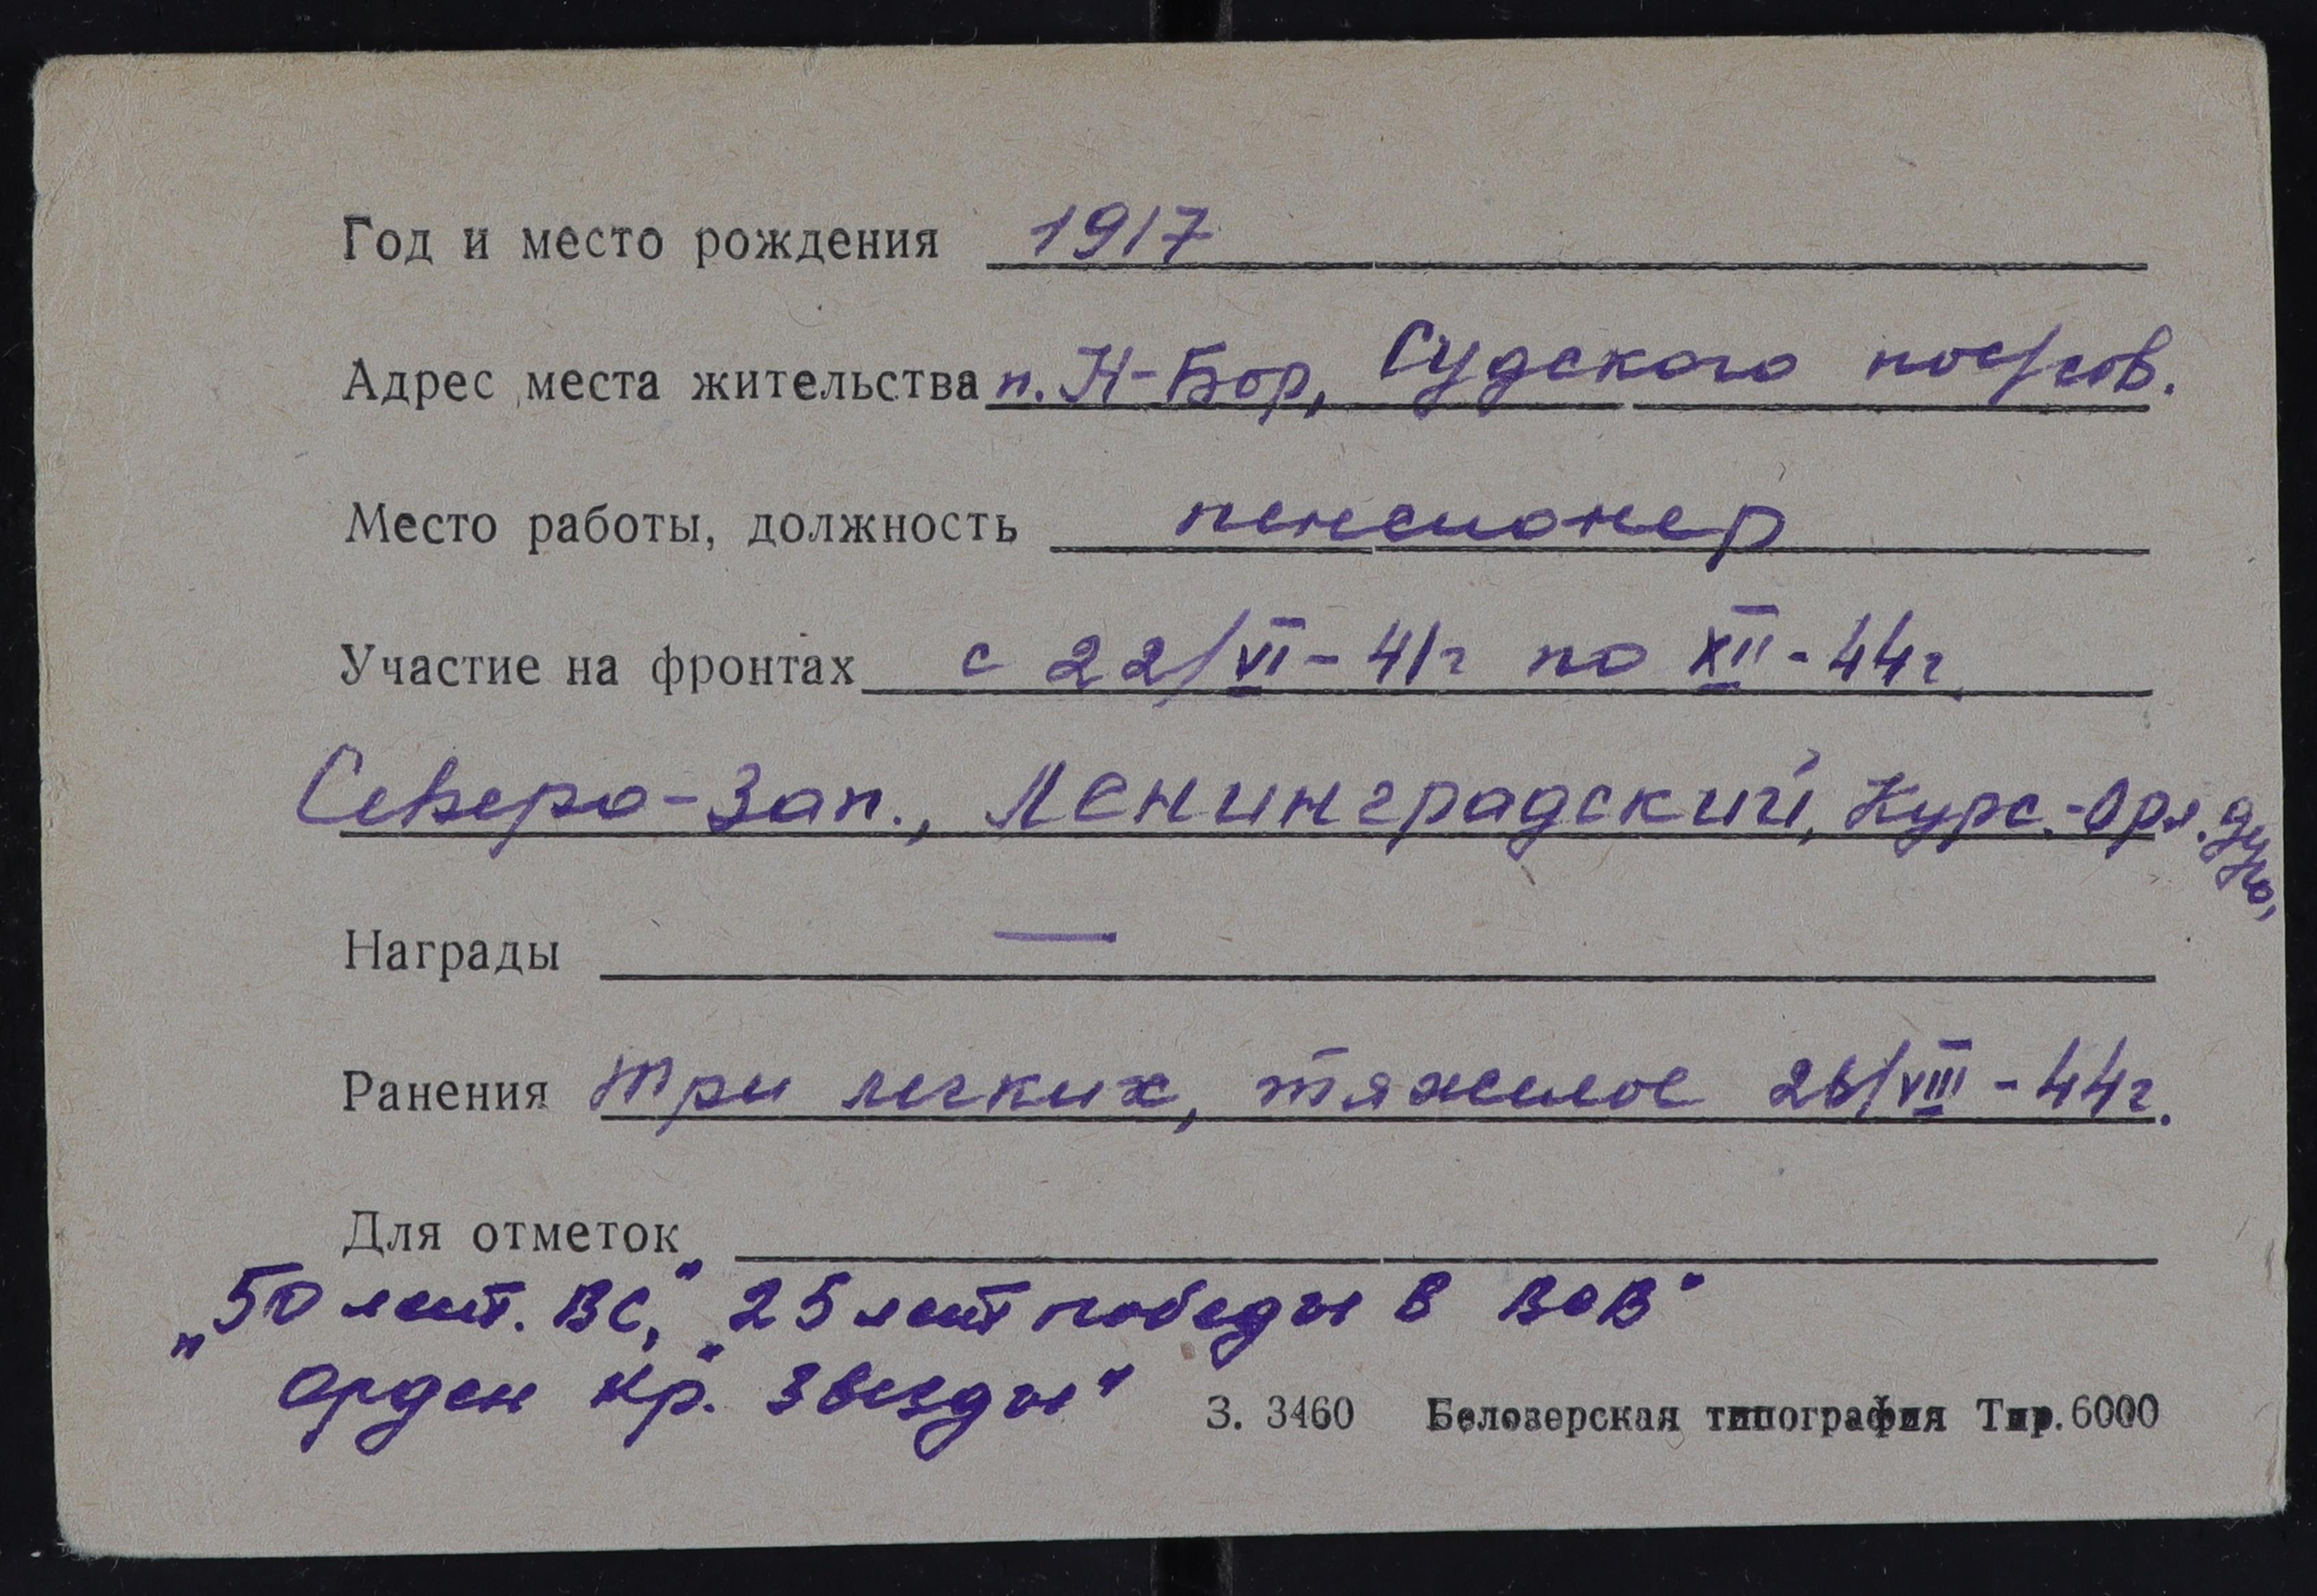 Год и место рождения 1917
Адрес места жительства п. Н-Бор, Судского пос/сов.
Место работы, должность пенсионер
Участие на фронтах с 22/VI-41г по XII-44г
Северо-Зап., Ленинградский, Курс.-Орл. дуга,
Награды —
Ранения три легких, тяжелое 26/VIII-44г.
Для отметок
„50 лет. ВС," "25 лет победы в ВОВ"
орден Кр. Звезды"
З. 3460 Белозерская типография Тир. 6000